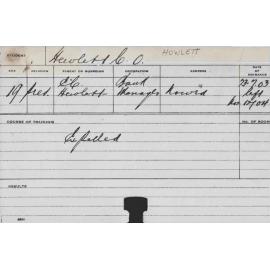 HOWLETT
STUDENT Hewlett C. O.
AGE RELIGION PARENT OR GUARDIAN OCCUPATION ADDRESS DATE OF ENTRANCE
19 Pres. Hewlett Bank Manager 22 7 03 left
COURSE OF TRAINING NO. OF ROOM
Expelled
RESULTS